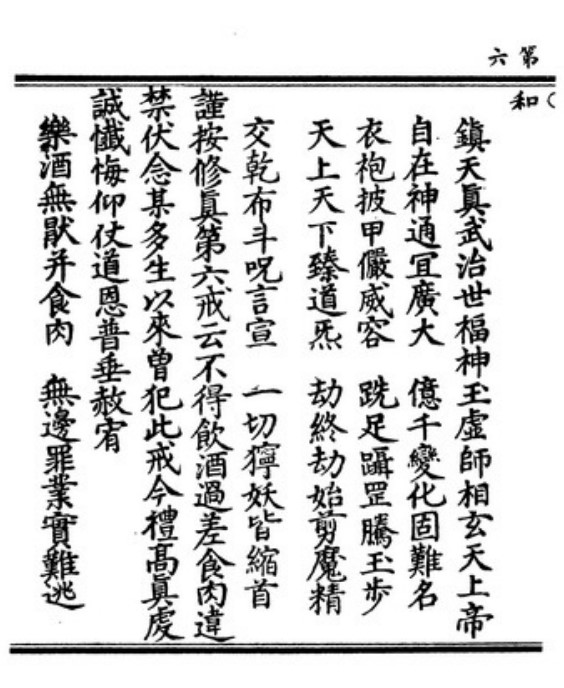 第六
（和
鎮天真武治世福神玉虛師相玄天上帝
自在神通冝廣大　億千變化固難名
衣袍披甲儼威容　跣足躡罡騰玉步
天上天下臻道炁　劫終劫始剪魔精
交乾布斗呪言宣　一切獰妖皆縮首
謹按修真第六戒云不得飲酒過差食肉違
禁伏念某多生以來曾犯此戒今禮高真虔
誠懺悔仰仗道恩普垂赦宥
樂酒無猒并食肉　無邊罪業實難逃